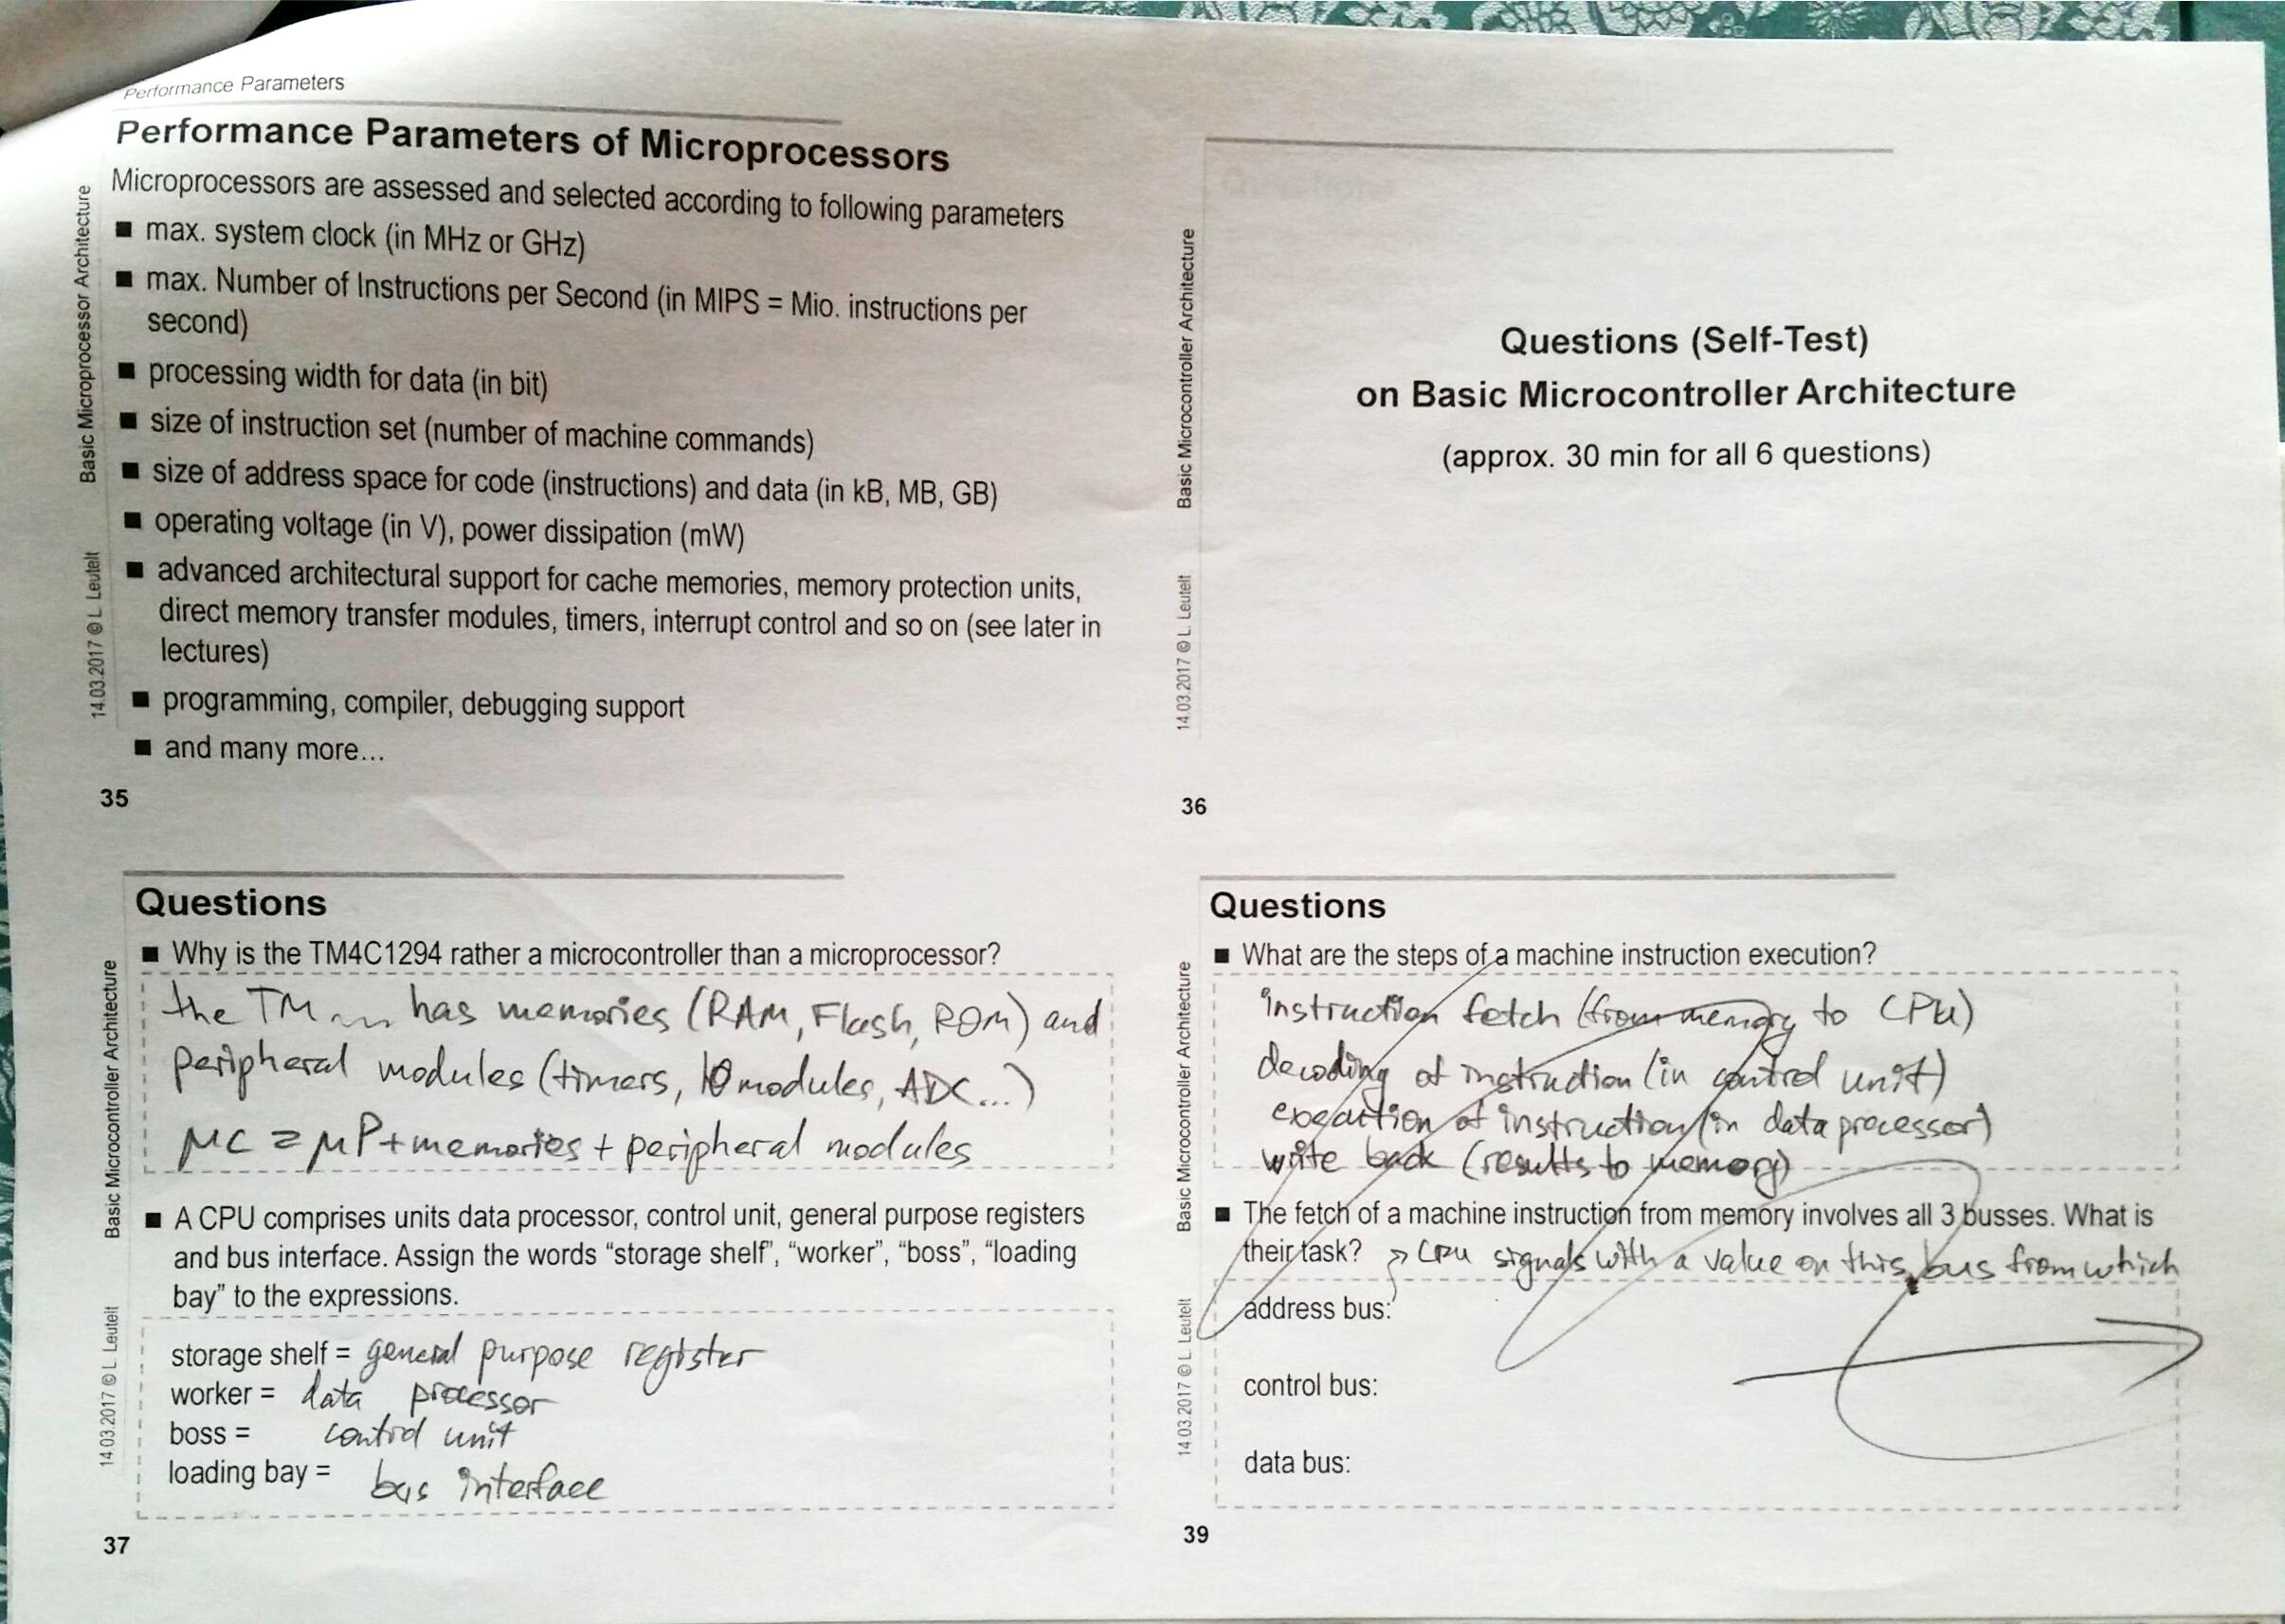 Performance Parameters
Performance Parameters of Microprocessors
Microprocessors are assessed and selected according to following parameters
■ max. system clock (in MHz or GHz)
■ max. Number of Instructions per Second (in MIPS = Mio. instructions per
second)
■ processing width for data (in bit)
■ size of instruction set (number of machine commands)
■ size of address space for code (instructions) and data (in kB, MB, GB)
■ operating voltage (in V), power dissipation (mW)
■ advanced architectural support for cache memories, memory protection units,
direct memory transfer modules, timers, interrupt control and so on (see later in
lectures)
■ programming, compiler, debugging support
■ and many more...
Basic Microprocessor Architecture
14.03.2017 © L. Leutelt
35
Questions (Self-Test)
on Basic Microcontroller Architecture
(approx. 30 min for all 6 questions)
Basic Microcontroller Architecture
14.03.2017 © L. Leutelt
36
Questions
■ Why is the TM4C1294 rather a microcontroller than a microprocessor?
the TM has memories (RAM, Flash, ROM) and
peripheral modules (timers, IO modules, ADC...)
μC = μP + memories + peripheral modules
■ A CPU comprises units data processor, control unit, general purpose registers
and bus interface. Assign the words “storage shelf”, “worker”, “boss”, “loading
bay” to the expressions.
storage shelf = general purpose register
worker = data processor
boss = control unit
loading bay = bus interface
Basic Microcontroller Architecture
14.03.2017 © L. Leutelt
37
Questions
■ What are the steps of a machine instruction execution?
instruction fetch (from memory to CPU)
decoding of instruction (in control unit)
execution of instruction (in data processor)
write back (results to memory)
■ The fetch of a machine instruction from memory involves all 3 busses. What is
their task? → CPU signals with a value on this bus from which
address bus:
control bus:
data bus:
Basic Microcontroller Architecture
14.03.2017 © L. Leutelt
39